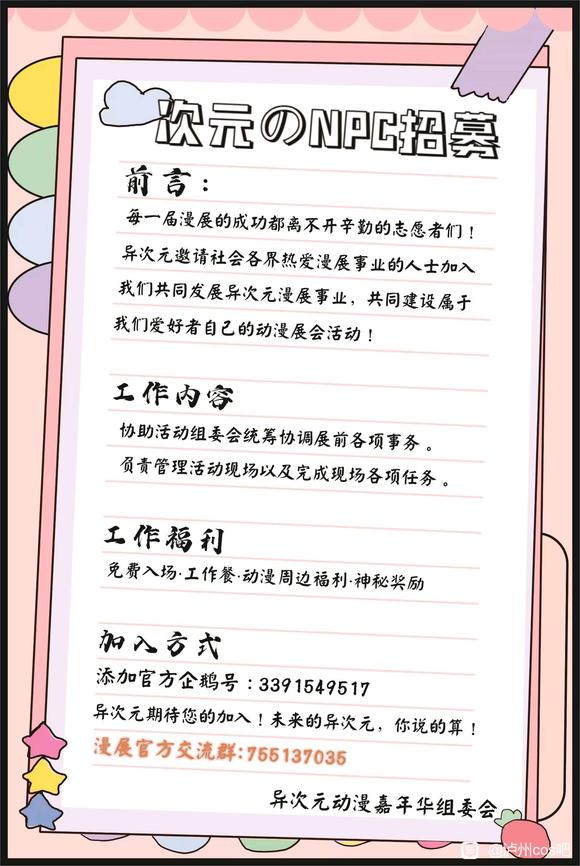 次元のNPC招募
前言：
每一届漫展的成功都离不开辛勤的志愿者们！
异次元邀请社会各界热爱漫展事业的人士加入
我们共同发展异次元漫展事业，共同建设属于
我们爱好者自己的动漫展会活动！
工作内容
协助活动组委会统筹协调展前各项事务。
负责管理活动现场以及完成现场各项任务。
工作福利
免费入场·工作餐·动漫周边福利·神秘奖励
加入方式
添加官方企鹅号：3391549517
异次元期待您的加入！未来的异次元，你说的算！
漫展官方交流群:755137035
异次元动漫嘉年华组委会
@泸州cos吧